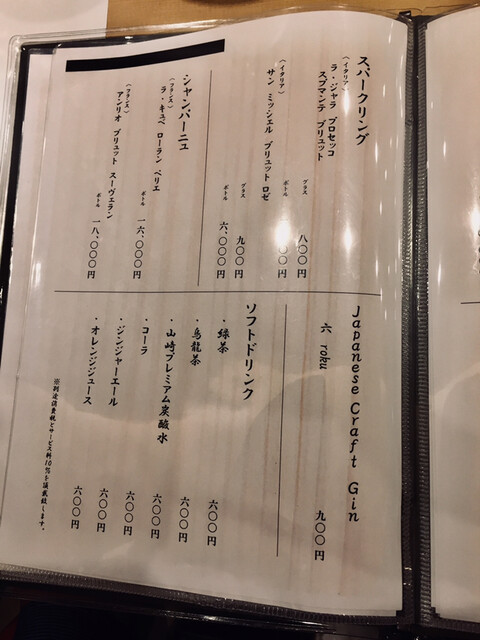 スパークリング
(イタリア)
ラ・ジャラ プロセッコ
スプマンテ ブリュット
グラス 八〇〇円
ボトル 〇〇〇円
(イタリア)
サン ミッシェル ブリュット ロゼ
グラス 九〇〇円
ボトル 六、〇〇〇円
シャンパーニュ
(フランス)
ラ・キュベ ローラン ペリエ
ボトル 一六、〇〇〇円
(フランス)
アンリオ ブリュット スーヴェラン
ボトル 一八、〇〇〇円
Japanese Craft Gin
六 roku 九〇〇円
ソフトドリンク
・緑茶 六〇〇円
・烏龍茶 六〇〇円
・山崎プレミアム炭酸水 六〇〇円
・コーラ 六〇〇円
・ジンジャーエール 六〇〇円
・オレンジジュース 六〇〇円
※別途消費税とサービス料10%を頂戴致します。